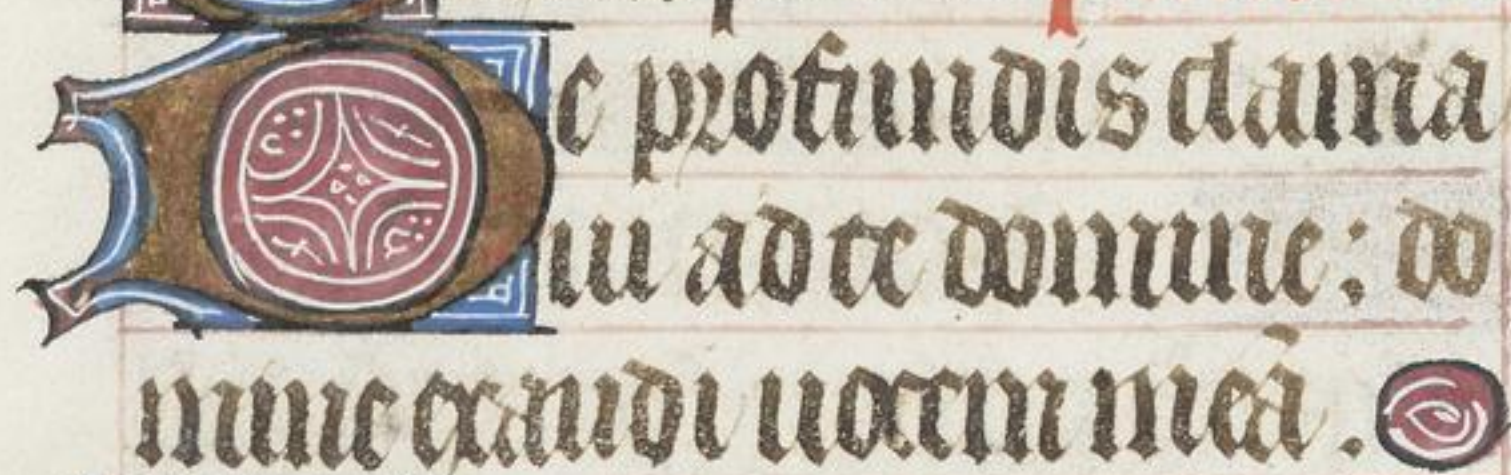 De profundis clama
ui ad te domine : do
mine exaudi uocem meā .